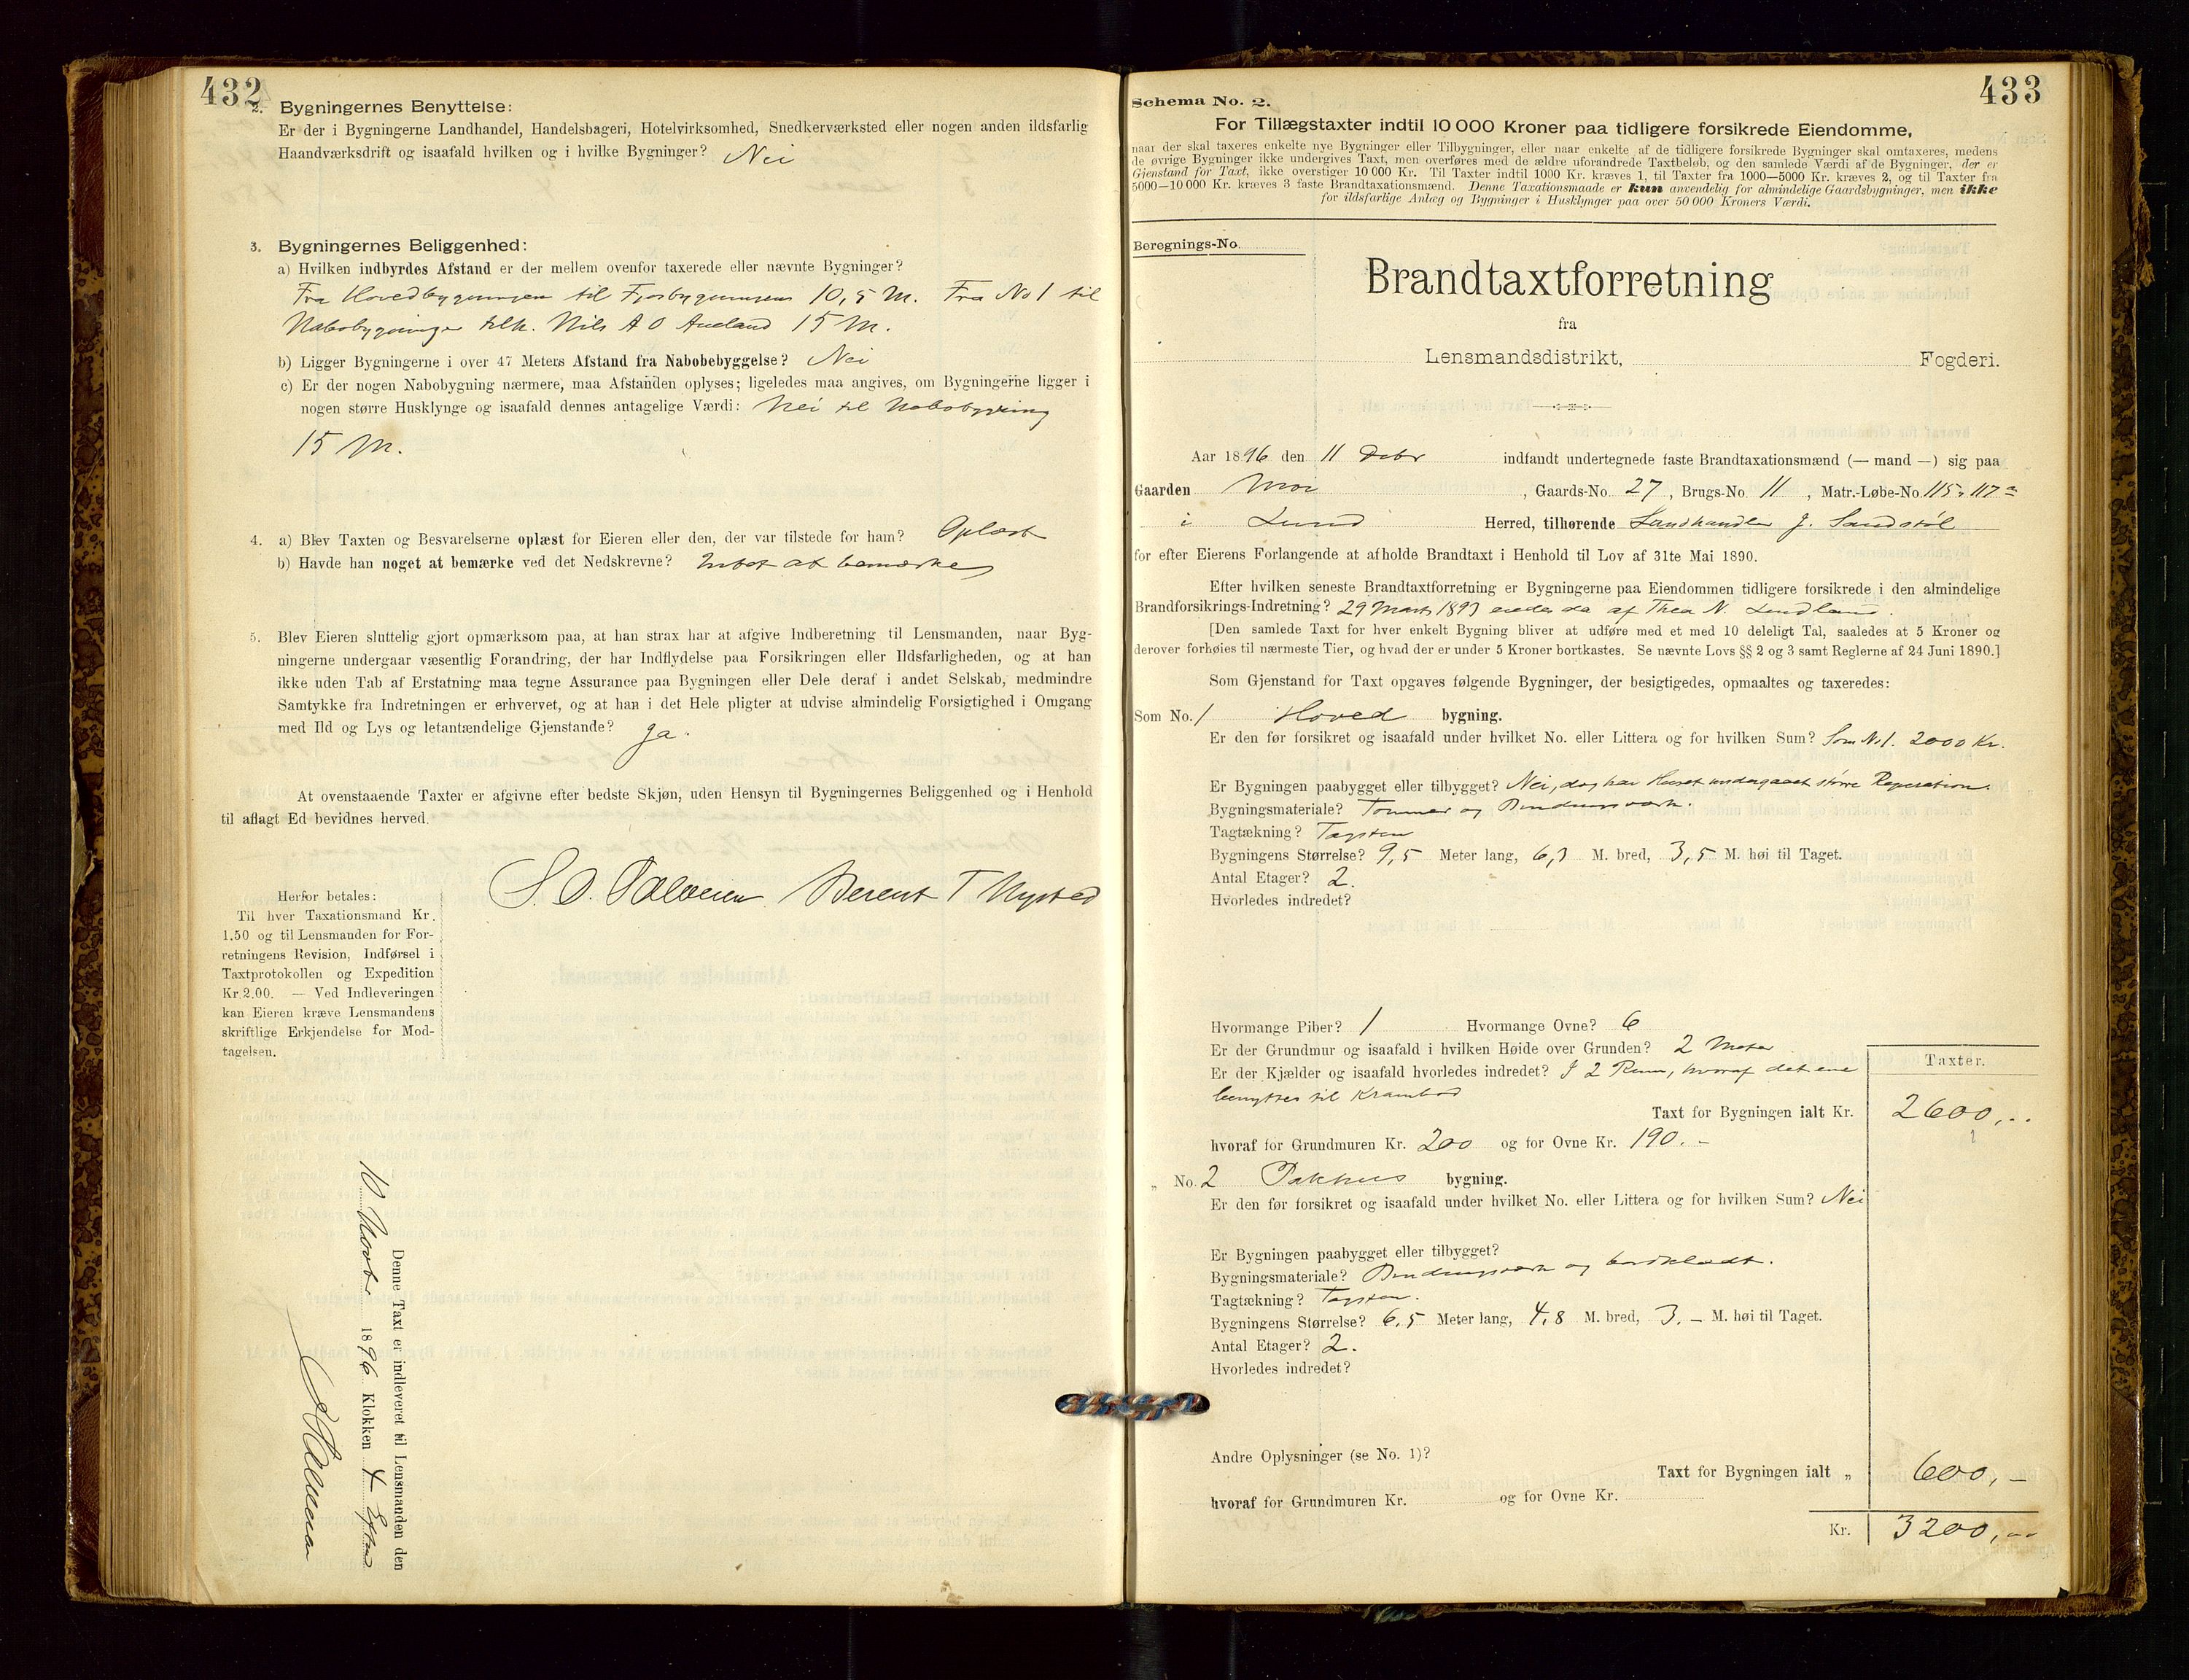 432
2. Bygningernes Benyttelse:
Er der i Bygningerne Landhandel, Handelsbageri, Hotelvirksomhed, Snedkerværksted eller nogen anden ildsfarlig
Haandværksdrift og isaafald hvilken og i hvilke Bygninger? Nei
3. Bygningernes Beliggenhed:
a) Hvilken indbyrdes Afstand er der mellem ovenfor taxerede eller nævnte Bygninger?
Fra Hovedbygningen til Fjøsbygningen 10,5 M. Fra No 1 til
Nabobygninger tilh. Nils A O Aueland 15 M.
b) Ligger Bygningerne i over 47 Meters Afstand fra Nabobebyggelse? Nei
c) Er der nogen Nabobygning nærmere, maa Afstanden oplyses; ligeledes maa angives, om Bygningerne ligger i
nogen større Husklynge og isaafald dennes antagelige Værdi: Nei til Nabobygning
15 M.
4. a) Blev Taxten og Besvarelserne oplæst for Eieren eller den, der var tilstede for ham? Oplæst
b) Havde han noget at bemærke ved det Nedskrevne? Intet at bemærke
5. Blev Eieren sluttelig gjort opmærksom paa, at han strax har at afgive Indberetning til Lensmanden, naar Byg-
ningerne undergaar væsentlig Forandring, der har Indflydelse paa Forsikringen eller Ildsfarligheden, og at han
ikke uden Tab af Erstatning maa tegne Assurance paa Bygningen eller Dele deraf i andet Selskab, medmindre
Samtykke fra Indretningen er erhvervet, og at han i det Hele pligter at udvise almindelig Forsigtighed i Omgang
med Ild og Lys og letantændelige Gjenstande? Ja.
At ovenstaaende Taxter er afgivne efter bedste Skjøn, uden Hensyn til Bygningernes Beliggenhed og i Henhold
til aflagt Ed bevidnes herved.
Berent T Nysted
Herfor betales:
Til hver Taxationsmand Kr.
1.50 og til Lensmanden for For-
retningens Revision, Indførsel i
Taxtprotokollen og Expedition
Kr. 2.00. — Ved Indleveringen
kan Eieren kræve Lensmandens
skriftlige Erkjendelse for Mod-
tagelsen.
Denne Taxt er indleveret til Lensmanden den
10 Novbr 1896 Klokken 4 Efterm
433
Schema No. 2.
For Tillægstaxter indtil 10 000 Kroner paa tidligere forsikrede Eiendomme,
naar der skal taxeres enkelte nye Bygninger eller Tilbygninger, eller naar enkelte af de tidligere forsikrede Bygninger skal omtaxeres, medens
de øvrige Bygninger ikke undergives Taxt, men overføres med de ældre uforandrede Taxtbeløb, og den samlede Værdi af de Bygninger, der er
Gjenstand for Taxt, ikke overstiger 10 000 Kr. Til Taxter indtil 1000 Kr. kræves 1, til Taxter fra 1000—5000 Kr. kræves 2, og til Taxter fra
5000—10 000 Kr. kræves 3 faste Brandtaxationsmænd. Denne Taxationsmaade er kun anvendelig for almindelige Gaardsbygninger, men ikke
for ildsfarlige Anlæg og Bygninger i Husklynger paa over 50 000 Kroners Værdi.
Beregnings-No.
Brandtaxtforretning
fra
Lensmandsdistrikt, Fogderi.
Aar 1896 den 11 Debr indfandt undertegnede faste Brandtaxationsmænd (— mand —) sig paa
Gaarden Moi, Gaards-No. 27, Brugs-No. 11, Matr.-Løbe-No. 115, 117a
i Lund Herred, tilhørende Landhandler J. Sandstøl
for efter Eierens Forlangende at afholde Brandtaxt i Henhold til Lov af 31te Mai 1890.
Efter hvilken seneste Brandtaxtforretning er Bygningerne paa Eiendommen tidligere forsikrede i den almindelige
Brandforsikrings-Indretning? 29 Marts 1893 eiedes da af Thea N. Lindland.
[Den samlede Taxt for hver enkelt Bygning bliver at udføre med et med 10 deleligt Tal, saaledes at 5 Kroner og
derover forhøies til nærmeste Tier, og hvad der er under 5 Kroner bortkastes. Se nævnte Lovs §§ 2 og 3 samt Reglerne af 24 Juni 1890.]
Som Gjenstand for Taxt opgaves følgende Bygninger, der besigtigedes, opmaaltes og taxeredes:
Som No. 1 Hoved bygning.
Er den før forsikret og isaafald under hvilket No. eller Littera og for hvilken Sum? Som No 1. 2000 Kr.
Er Bygningen paabygget eller tilbygget? Nei, dog har Huset undergaaet større Reperation.
Bygningsmateriale? Tømmer og Bindingsværk.
Tagtækning? Tagsten
Bygningens Størrelse? 9,5 Meter lang, 6,3 M. bred, 3,5 M. høi til Taget.
Antal Etager? 2.
Hvorledes indredet?
Hvormange Piber? 1 Hvormange Ovne? 6
Er der Grundmur og isaafald i hvilken Høide over Grunden? 2 Meter
Er der Kjælder og isaafald hvorledes indredet? I 2 Rum, hvoraf det ene
benyttes til Krambod
Taxter.
Taxt for Bygningen ialt Kr. 2600,--
hvoraf for Grundmuren Kr. 200 og for Ovne Kr. 190.-
„ No. 2 Pakhus bygning.
Er den før forsikret og isaafald under hvilket No. eller Littera og for hvilken Sum? Nei
Er Bygningen paabygget eller tilbygget?
Bygningsmateriale? Bindingsværk og bordklædt.
Tagtækning? Tagsten.
Bygningens Størrelse? 6,5 Meter lang, 4,8 M. bred, 3.- M. høi til Taget.
Antal Etager? 2.
Hvorledes indredet?
Andre Oplysninger (se No. 1)?
Taxt for Bygningen ialt „ 600,-
hvoraf for Grundmuren Kr. og for Ovne Kr.
Kr. 3200,--